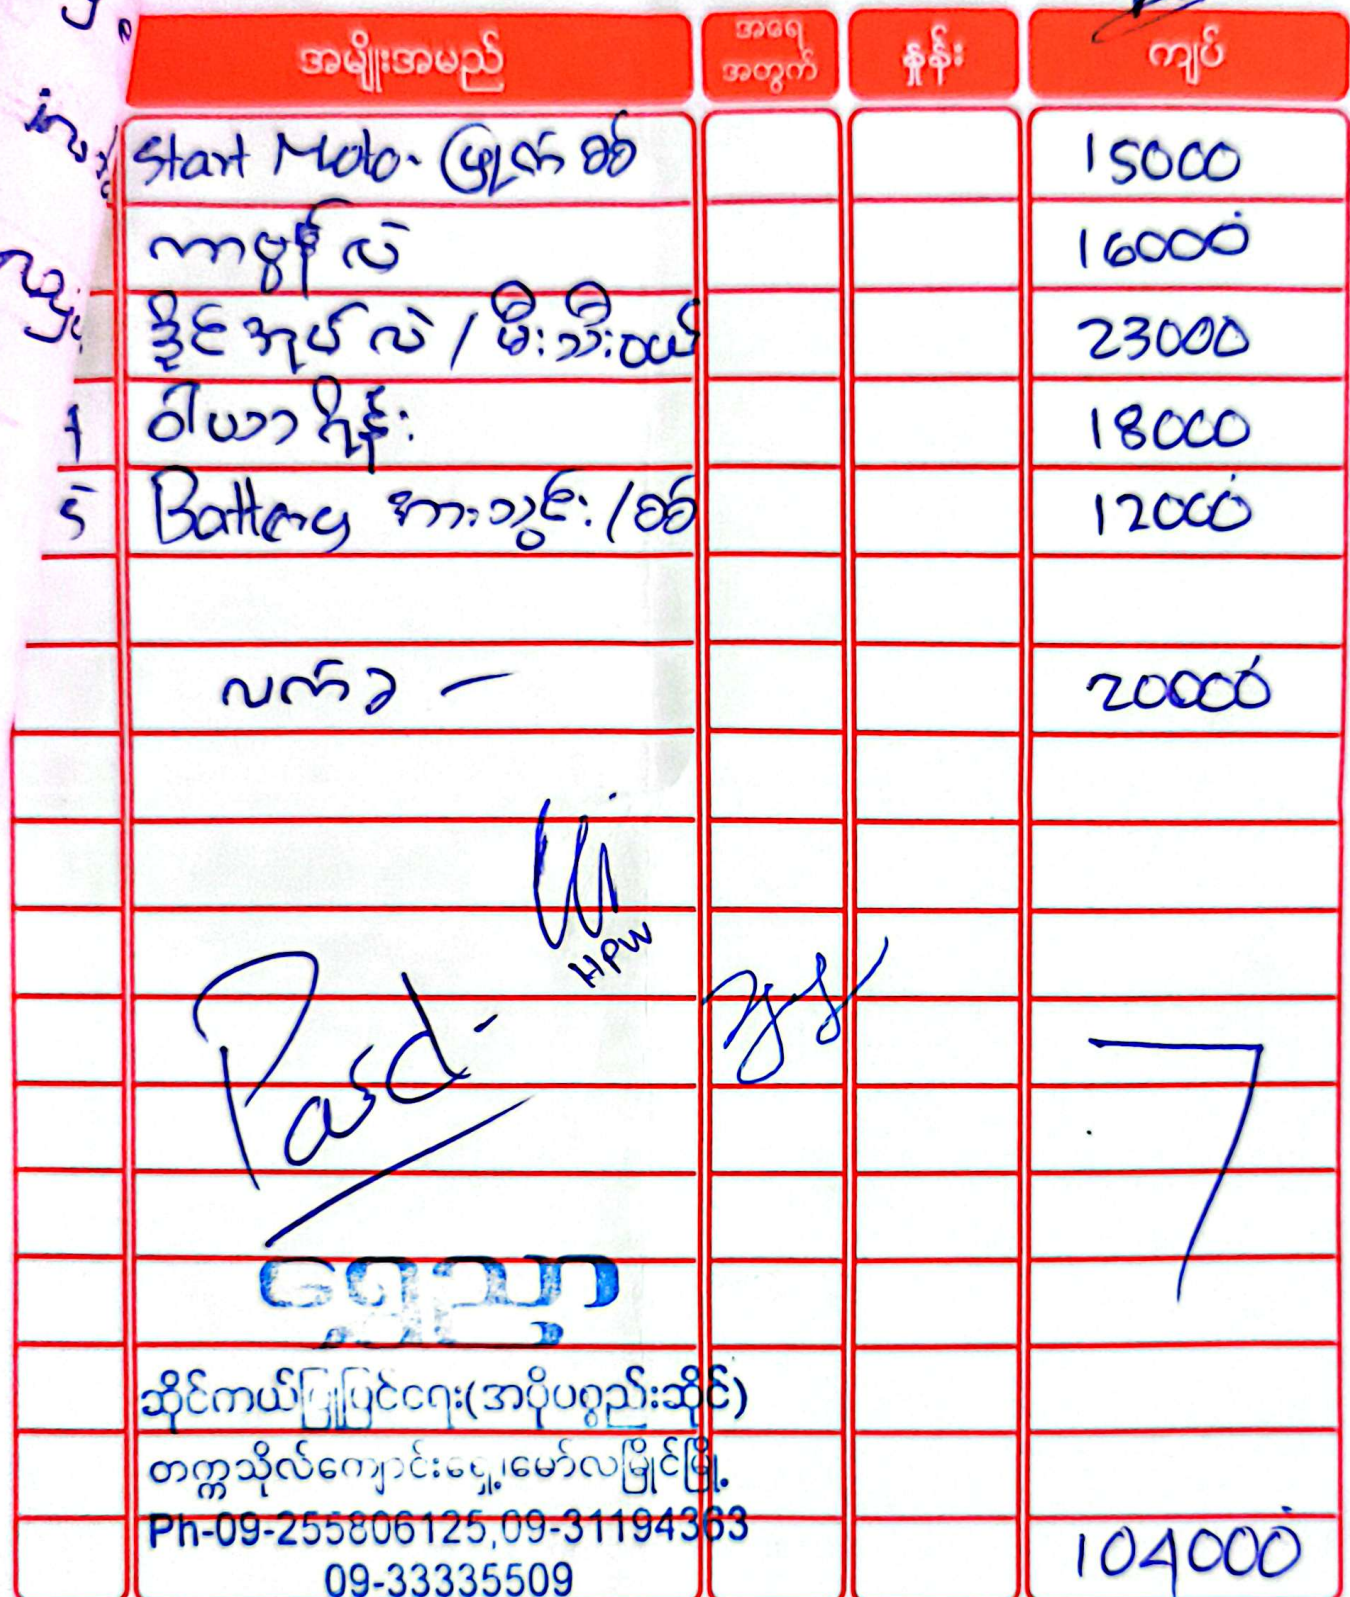 အမျိုးအမည် အရေအတွက် နှုန်း ကျပ်
Start Moto- ဖြုတ်စစ် 15000
ကာဗွန်လဲ 16000
ဒိုင်အုပ်လဲ / မီးသီးဝယ် 23000
၄ ဝါယာရိန်း 18000
၅ Battery အားသွင်း/စစ် 12000
လက်ခ — 20000
HPW
Paid
ရွှေညာ
ဆိုင်ကယ်ပြုပြင်ရေး(အပိုပစ္စည်းဆိုင်)
တက္ကသိုလ်ကျောင်းရှေ့၊မော်လမြိုင်မြို့
Ph-09-255806125,09-31194363
09-33335509
104000